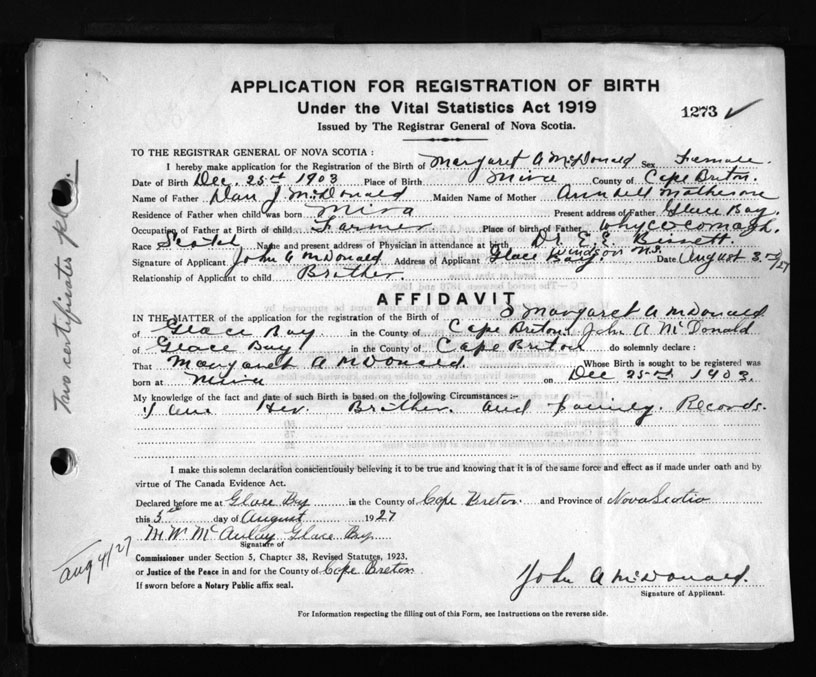 APPLICATION FOR REGISTRATION OF BIRTH
Under the Vital Statistics Act 1919
1273 ✓
Issued by The Registrar General of Nova Scotia.
TO THE REGISTRAR GENERAL OF NOVA SCOTIA:
I hereby make application for the Registration of the Birth of Margaret A McDonald Sex Female.
Date of Birth Dec. 25th 1903 Place of Birth Mira County of Cape Breton.
Name of Father Dan J McDonald Maiden Name of Mother Annbell Matheson
Residence of Father when child was born Mira Present address of Father Glace Bay.
Occupation of Father at Birth of child Farmer Place of birth of Father Whycocomagh.
Race Scotch Name and present address of Physician in attendance at birth Dr. E. E. Bissett.
Windsor N.S.
Signature of Applicant John A McDonald Address of Applicant Glace Bay. Date August 3rd/27
Relationship of Applicant to child Brother.
AFFIDAVIT
IN THE MATTER of the application for the registration of the Birth of Margaret A McDonald
of Glace Bay in the County of Cape Breton I, John A McDonald
of Glace Bay in the County of Cape Breton do solemnly declare:
That Margaret A McDonald. Whose Birth is sought to be registered was
born at Mira on Dec 25th 1903.
My knowledge of the fact and date of such Birth is based on the following Circumstances:-
I am Her Brother. and family. Records.
I make this solemn declaration conscientiously believing it to be true and knowing that it is of the same force and effect as if made under oath and by
virtue of The Canada Evidence Act.
Declared before me at Glace Bay in the County of Cape Breton and Province of Nova Scotia
this 3rd day of August 1927
M. W. McAulay Glace Bay
Signature of
Commissioner under Section 5, Chapter 38, Revised Statutes, 1923.
or Justice of the Peace in and for the County of Cape Breton
If sworn before a Notary Public affix seal.
John A McDonald.
Signature of Applicant.
For Information respecting the filling out of this Form, see Instructions on the reverse side.
Two certificates
Aug 4/27